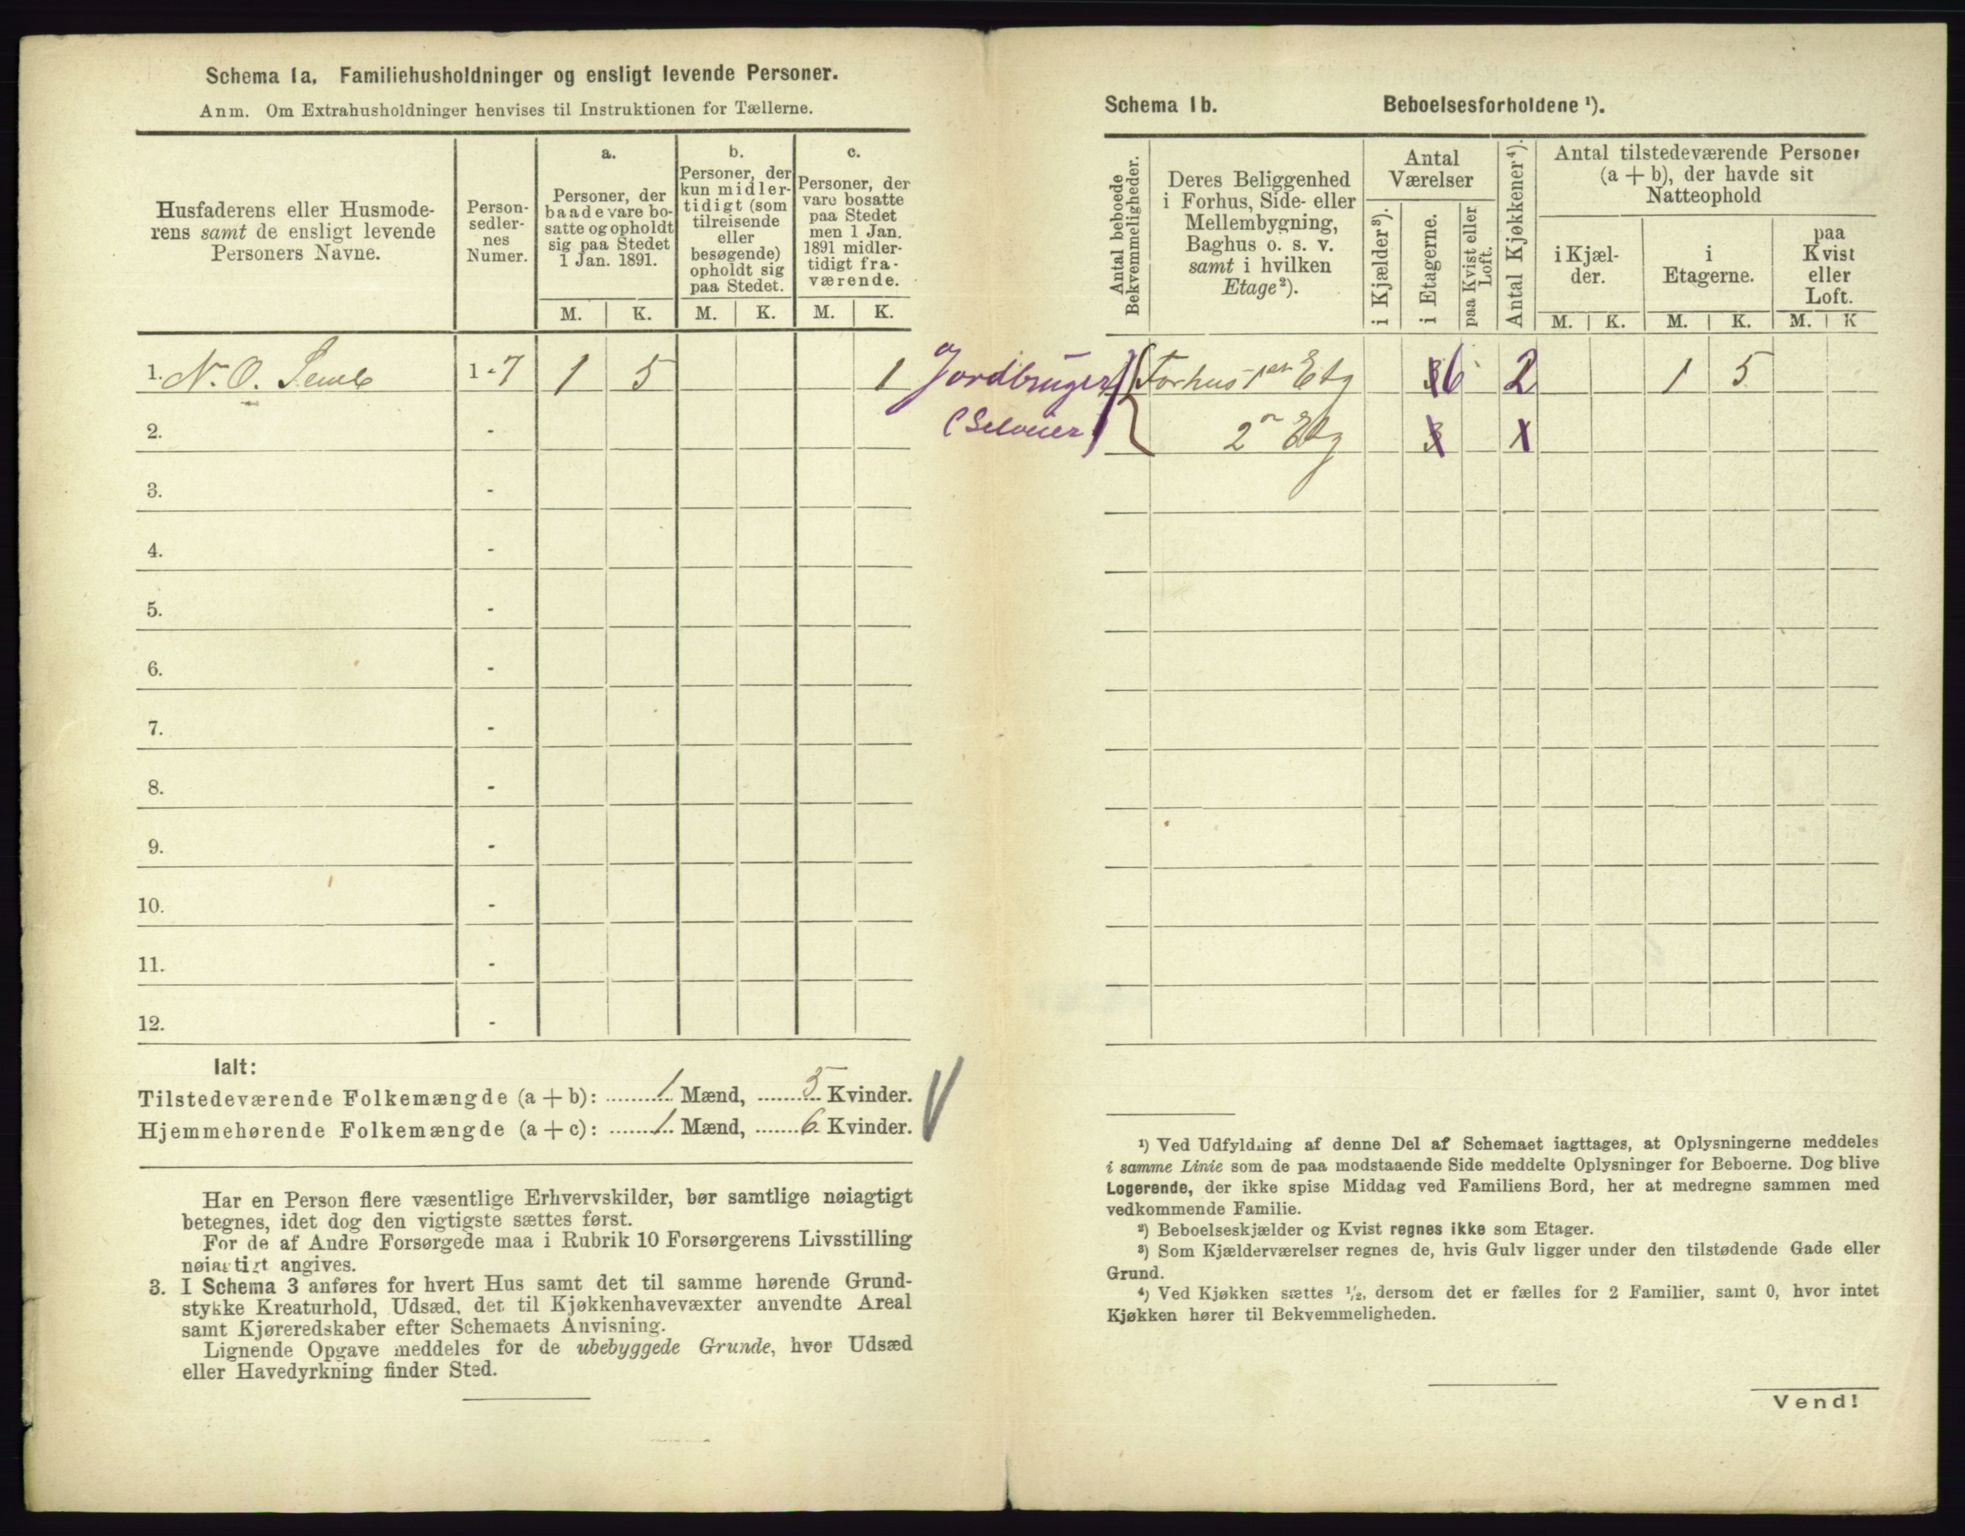 Schema 1a. Familiehusholdninger og ensligt levende Personer.
Anm. Om Extrahusholdninger henvises til Instruktionen for Tællerne.
Husfaderens eller Husmode-
rens samt de ensligt levende
Personers Navne.
Person-
sedler-
nes
Numer.
a.
Personer, der
baade vare bo-
satte og opholdt
sig paa Stedet
1 Jan. 1891.
b.
Personer, der
kun midler-
tidigt (som
tilreisende
eller
besøgende)
opholdt sig
paa Stedet.
c.
Personer, der
vare bosatte
paa Stedet
men 1 Jan.
1891 midler-
tidigt fra-
værende.
M. K. M. K. M. K.
1. N. O. Semb 1-7 1 5 1
2. -
3. -
4. -
5. -
6. -
7. -
8. -
9. -
10. -
11. -
12. -
Ialt:
Tilstedeværende Folkemængde (a + b): 1 Mænd, 5 Kvinder.
Hjemmehørende Folkemængde (a + c): 1 Mænd, 6 Kvinder.
Har en Person flere væsentlige Erhvervskilder, bør samtlige nøiagtigt
betegnes, idet dog den vigtigste sættes først.
For de af Andre Forsørgede maa i Rubrik 10 Forsørgerens Livsstilling
nøiagtigt angives.
3. I Schema 3 anføres for hvert Hus samt det til samme hørende Grund-
stykke Kreaturhold, Udsæd, det til Kjøkkenhavevæxter anvendte Areal
samt Kjøreredskaber efter Schemaets Anvisning.
Lignende Opgave meddeles for de ubebyggede Grunde, hvor Udsæd
eller Havedyrkning finder Sted.
Schema 1b. Beboelsesforholdene ¹).
Antal beboede
Bekvemmeligheder.
Deres Beliggenhed
i Forhus, Side- eller
Mellembygning,
Baghus o. s. v.
samt i hvilken
Etage²).
Antal
Værelser
i Kjælder³).
i Etagerne.
paa Kvist eller
Loft.
Antal Kjøkkener⁴).
Antal tilstedeværende Personer
(a + b), der havde sit
Natteophold
i Kjæl-
der.
i
Etagerne.
paa
Kvist
eller
Loft.
M. K. M. K. M. K
Jordbruger Forhus 1ste Etg 3 6 2 1 5
(Selveier) 2n Etg 3
¹) Ved Udfyldning af denne Del af Schemaet iagttages, at Oplysningerne meddeles
i samme Linie som de paa modstaaende Side meddelte Oplysninger for Beboerne. Dog blive
Logerende, der ikke spise Middag ved Familiens Bord, her at medregne sammen med
vedkommende Familie.
²) Beboelseskjælder og Kvist regnes ikke som Etager.
³) Som Kjælderværelser regnes de, hvis Gulv ligger under den tilstødende Gade eller
Grund.
⁴) Ved Kjøkken sættes ½, dersom det er fælles for 2 Familier, samt 0, hvor intet
Kjøkken hører til Bekvemmeligheden.
Vend!